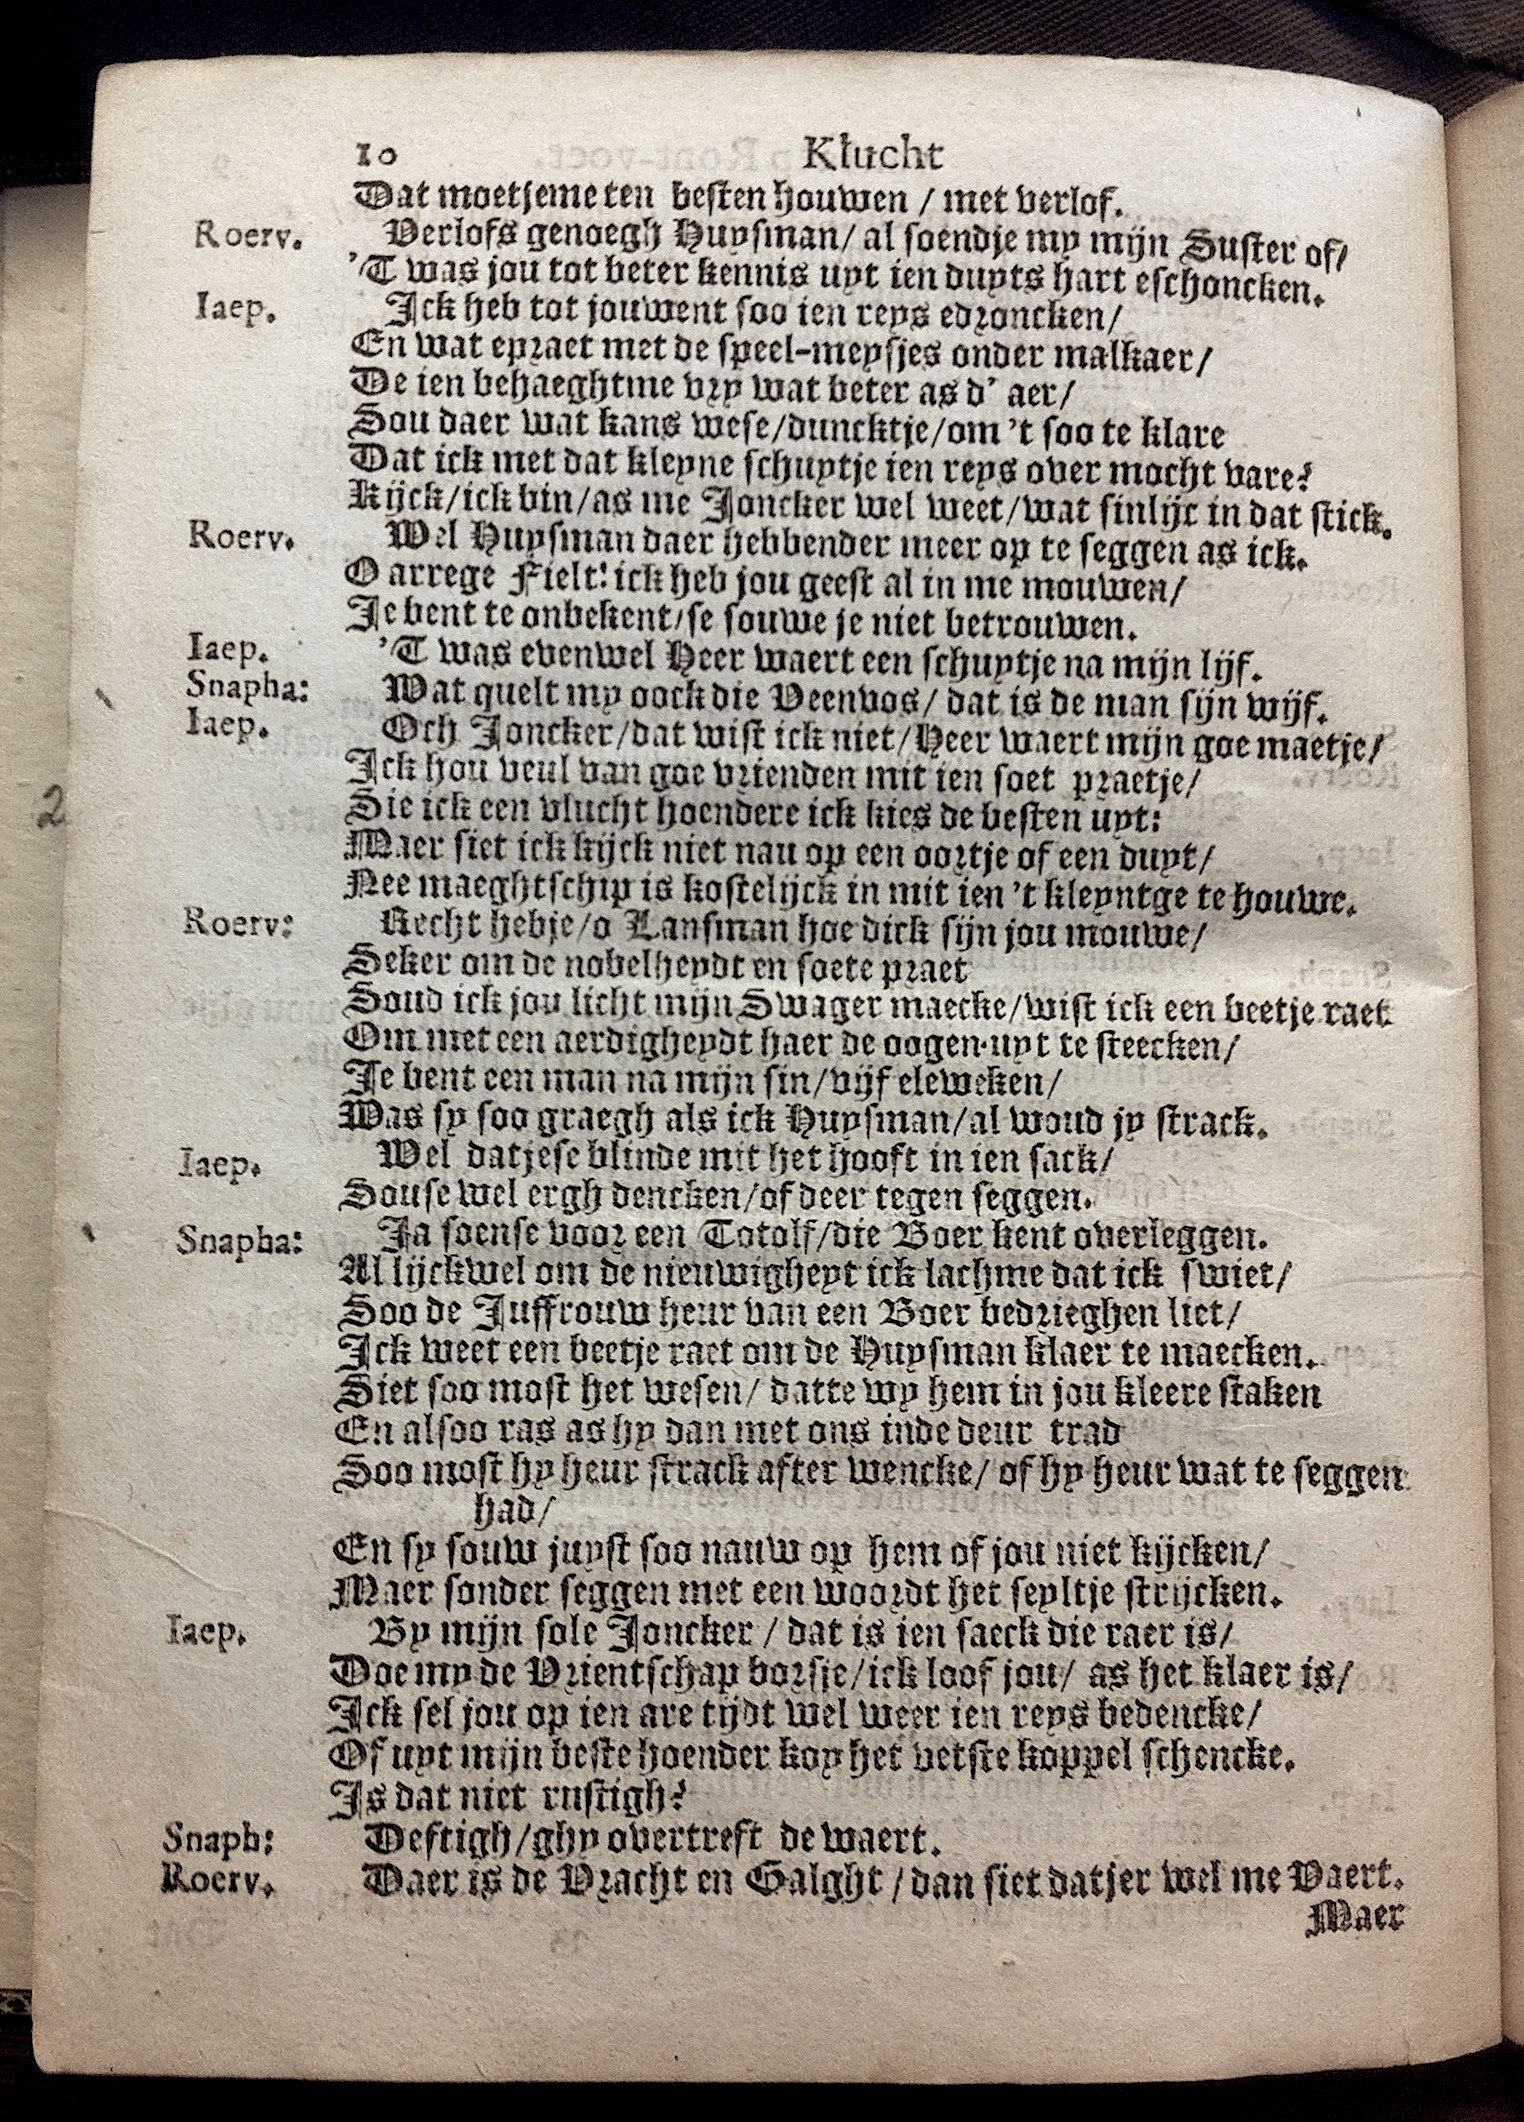 10 Klucht
Dat moetjeme ten besten houwen / met verlof.
Roerv. Verlofs genoegh Huysman/ al soendje my mijn Suster of/
'T was jou tot beter kennis uyt ien duyts hart eschoncken.
Iaep. Ick heb tot jouwent soo ien reys edroncken/
En wat epraet met de speel-meysjes onder malkaer/
De ien behaeghtme vry wat beter as d' aer/
Sou daer wat kans wese/duncktje/om 't soo te klare
Dat ick met dat kleyne schuytje ien reys over mocht vare?
Kijck/ick bin/as me Joncker wel weet/wat sinlijc in dat stick.
Roerv. Wel Huysman daer hebbender meer op te seggen as ick.
O arrege Fielt! ick heb jou geest al in me mouwen/
Je bent te onbekent/se souwe je niet betrouwen.
Iaep. 'T was evenwel Heer waert een schuytje na mijn lijf.
Snapha: Wat quelt my oock die Veenvos/ dat is de man sijn wijf.
Iaep. Och Joncker/dat wist ick niet/Heer waert mijn goe maetje/
Ick hou veul van goe vrienden mit ien soet praetje/
2
Sie ick een vlucht hoendere ick kies de besten uyt:
Maer siet ick kijck niet nau op een oortje of een duyt/
Nee maeghtschip is kostelijck in mit ien 't kleyntge te houwe.
Roerv: Recht hebje/o Lansman hoe dick sijn jou mouwe/
Seker om de nobelheydt en soete praet
Soud ick jou licht mijn Swager maecke/wist ick een beetje raet
Om met een aerdigheydt haer de oogen uyt te steecken/
Je bent een man na mijn sin/vijf eleweken/
Was sy soo graegh als ick Huysman/al woud jy strack.
Iaep. Wel datjese blinde mit het hooft in ien sack/
Souse wel ergh dencken/of deer tegen seggen.
Snapha: Ja soense voor een Totolf/die Boer kent overleggen.
Al lijckwel om de nieuwigheyt ick lachme dat ick swiet/
Soo de Juffrouw heur van een Boer bedrieghen liet/
Ick weet een beetje raet om de Huysman klaer te maecken.
Siet soo most het wesen/ datte wy hem in jou kleere staken
En alsoo ras as hy dan met ons inde deur trad
Soo most hy heur strack after wencke/ of hy heur wat te seggen
had/
En sy souw juyst soo nauw op hem of jou niet kijcken/
Maer sonder seggen met een woordt het seyltje strijcken.
Iaep. By mijn sole Joncker / dat is ien saeck die raer is/
Doe my de Vrientschap borsje/ick loof jou/ as het klaer is/
Ick sel jou op ien are tijdt wel weer ien reys bedencke/
Of uyt mijn beste hoender koy het vetste koppel schencke.
Is dat niet rustigh?
Snaph: Deftigh/ghy overtreft de waert.
Roerv. Daer is de Vracht en Galght / dan siet datjer wel me Vaert.
Maer